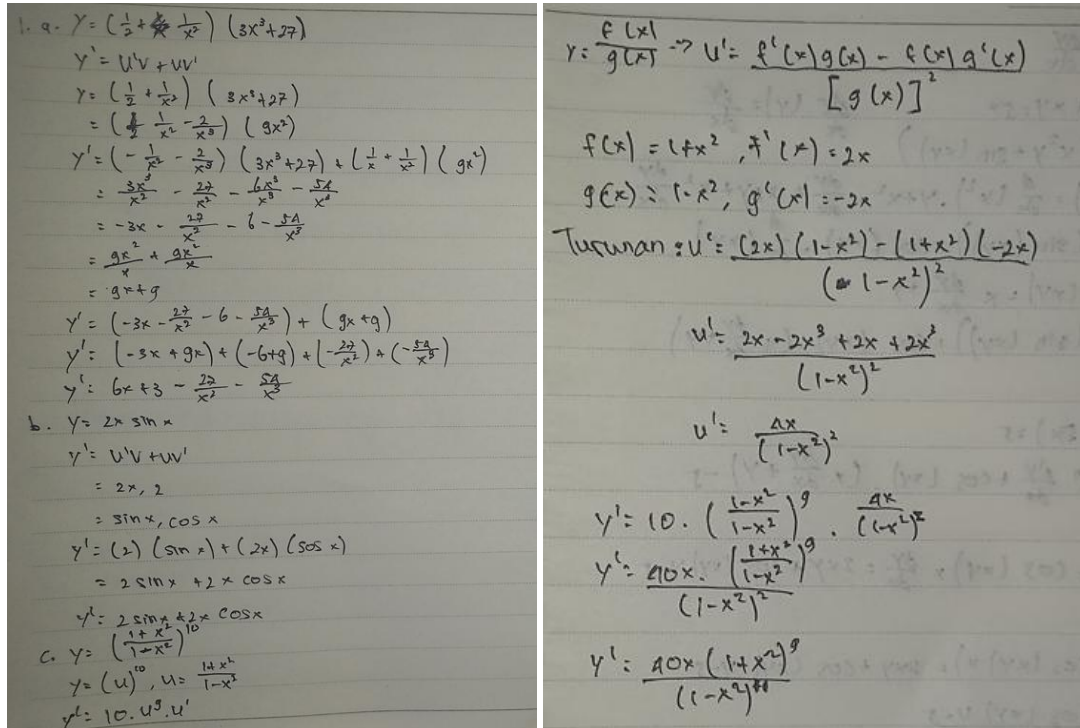 1. a. y = (1/2 + 1/x²) (3x³+27)
y' = u'v + uv'
y = (1/2 + 1/x²) (3x³+27)
= (1/x² - 2/x³) (9x²)
y' = (-1/x² - 2/x³) (3x³+27) + (1/x + 1/x²) (9x²)
= 3x³/x² - 27/x² - 6x³/x³ - 54/x³
= -3x - 27/x² - 6 - 54/x³
= 9x²/x + 9x²/x
= 9x+9
y' = (-3x - 27/x² - 6 - 54/x³) + (9x+9)
y' = (-3x + 9x) + (-6+9) + (-27/x²) + (-54/x³)
y' = 6x + 3 - 27/x² - 54/x³
b. y = 2x sin x
y' = u'v + uv'
= 2x, 2
= sin x, cos x
y' = (2) (sin x) + (2x) (cos x)
= 2 sin x + 2x cos x
y' = 2 sin x + 2x cos x
c. y = ((1+x²)/(1-x²))¹⁰
y = (u)¹⁰, u = (1+x²)/(1-x²)
y' = 10. u⁹. u'
y = f(x)/g(x) -> u' = (f'(x) g(x) - f(x) g'(x))/[g(x)]²
f(x) = 1+x², f'(x) = 2x
g(x) = 1-x², g'(x) = -2x
Turunan : u' = ((2x) (1-x²) - (1+x²) (-2x))/(1-x²)²
u' = (2x - 2x³ + 2x + 2x³)/(1-x²)²
u' = 4x/(1-x²)²
y' = 10. ((1-x²)/(1-x²))⁹ . 4x/(1-x²)²
y' = 40x. ((1+x²)/(1-x²))⁹/(1-x²)²
y' = 40x (1+x²)⁹/(1-x²)¹¹